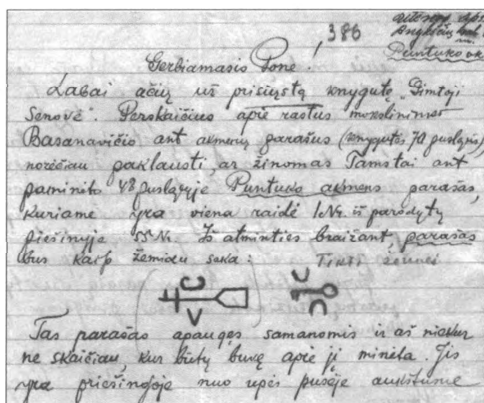 386
Gerbiamasis Pone!
Labai ačiū už prisiųstą knygutę „Gimtoji
Senovė". Perskaičius apie rastus mokslininės
Basanavičio ant akmenų parašus (knygutės 70 puslapis)
norėčiau paklausti, ar žinomas Tamstai ant
paminėto 48 puslapyje Puntuko akmens parašas,
kuriame yra viena raidė 1 Nr. iš parodytų
piešinyje 55 Nr. Iš atminties braižant, parašas
bus kaip žemiau seka:
Tas parašas apaugęs samanomis ir aš niekur
ne skaičiau, kur būtų buvę apie jį minėta. Jis
yra priešingoje nuo upės pusėje aukštume